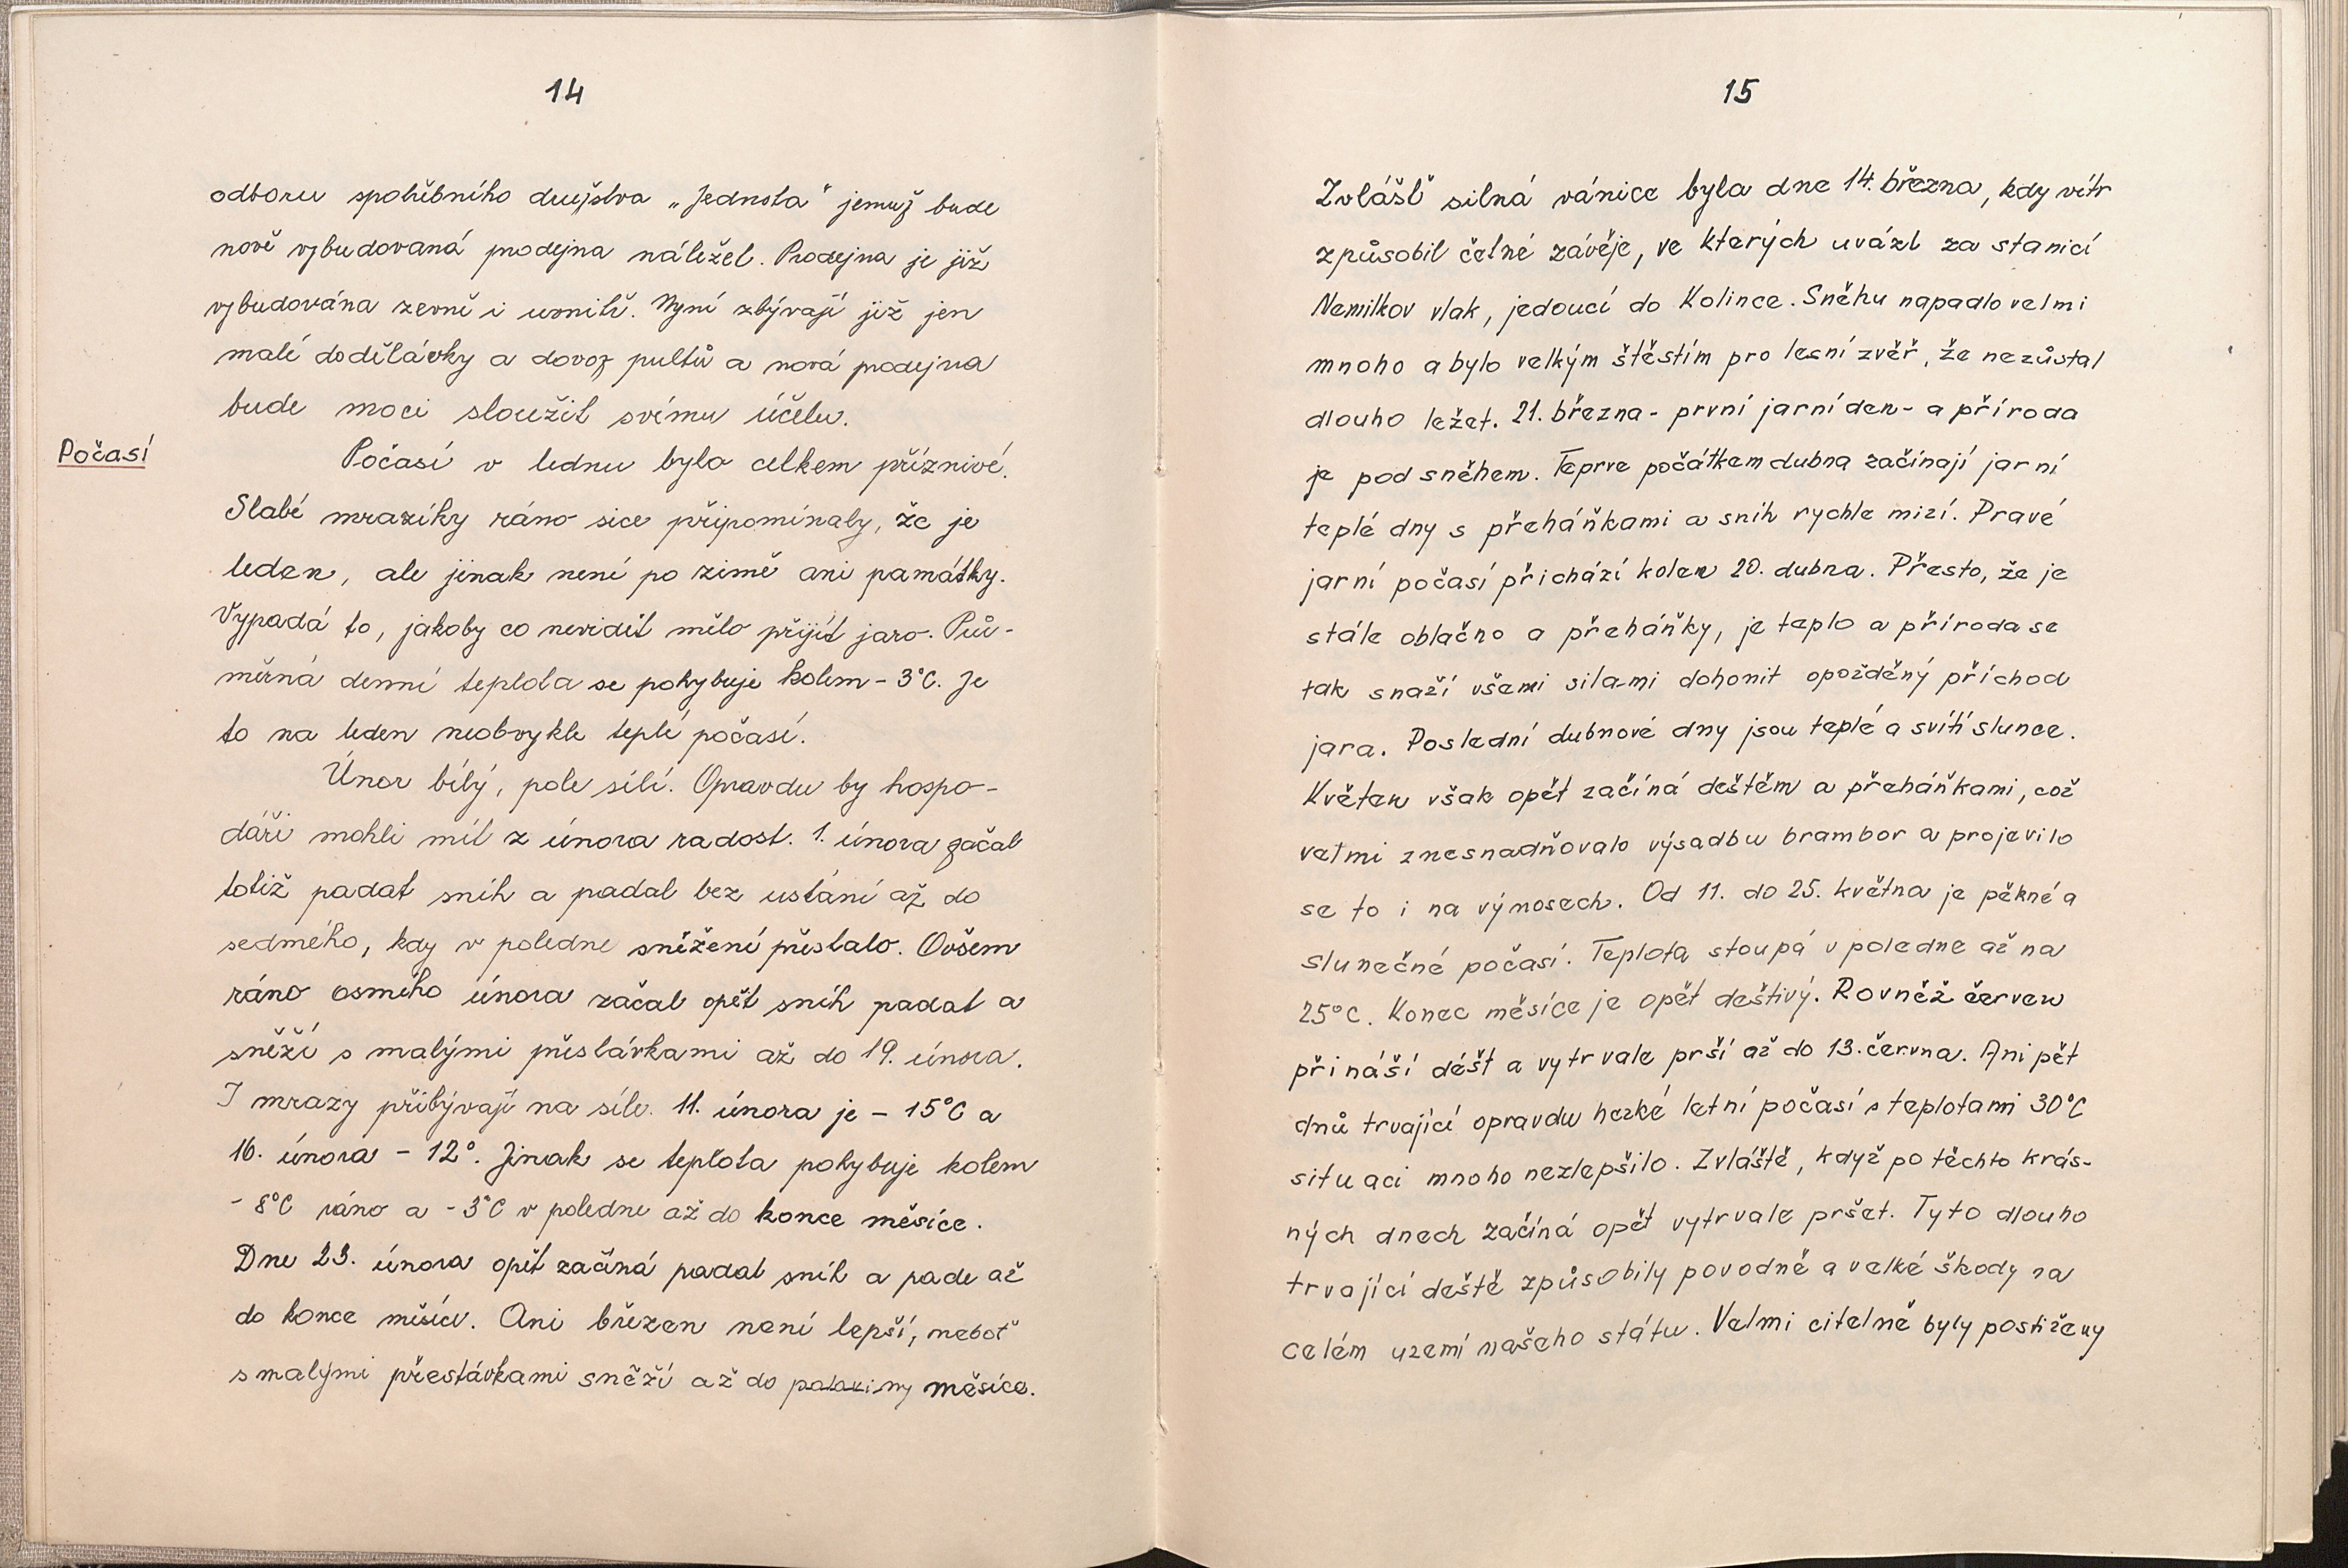 14
odboru spotřebního družstva „Jednota" jemuž bude
nově vybudovaná prodejna náležet. Prodejna je již
vybudována zevně i uvnitř. Nyní zbývají již jen
malé dodělávky a dovoz pultů a nová prodejna
bude moci sloužit svému účelu.
Počasí
Počasí v lednu bylo celkem příznivé.
Slabé mrazíky ráno sice připomínaly, že je
leden, ale jinak není po zimě ani památky.
Vypadá to, jakoby co nevidět mělo přijít jaro. Prů-
měrná denní teplota se pohybuje kolem - 3°C. Je
to na leden neobvykle teplé počasí.
Únor bílý, pole sílí. Opravdu by hospo-
dáři mohli mít z února radost. 1. února začal
totiž padat sníh a padal bez ustání až do
sedmého, kdy v poledne sněžení přestalo. Ovšem
ráno osmého února začal opět sníh padat a
sněží s malými přestávkami až do 19. února.
I mrazy přibývají na síle. 11. února je - 15°C a
16. února - 12°. Jinak se teplota pohybuje kolem
- 8°C ráno a - 3°C v poledne až do konce měsíce.
Dne 23. února opět začíná padat sníh a pade až
do konce měsíce. Ani březen není lepší, neboť
s malými přestávkami sněží až do poloviny měsíce.
15
Zvlášť silná vánice byla dne 14. března, kdy vítr
způsobil četné závěje, ve kterých uvázl za stanicí
Nemilkov vlak, jedoucí do Kolince. Sněhu napadlo velmi
mnoho a bylo velkým štěstím pro lesní zvěř, že nezůstal
dlouho ležet. 21. března - první jarní den - a příroda
je pod sněhem. Teprve počátkem dubna začínají jarní
teplé dny s přeháňkami a sníh rychle mizí. Pravé
jarní počasí přichází kolem 20. dubna. Přesto, že je
stále oblačno a přeháňky, je teplo a příroda se
tak snaží všemi silami dohonit opožděný příchod
jara. Poslední dubnové dny jsou teplé a svítí slunce.
Květen však opět začíná deštěm a přeháňkami, což
velmi znesnadňovalo výsadbu brambor a projevilo
se to i na výnosech. Od 11. do 25. května je pěkné a
slunečné počasí. Teplota stoupá v poledne až na
25°C. Konec měsíce je opět deštivý. Rovněž červen
přináší déšť a vytrvale prší až do 13. června. Ani pět
dnů trvající opravdu hezké letní počasí s teplotami 30°C
situaci mnoho nezlepšilo. Zvláště, když po těchto krás-
ných dnech začíná opět vytrvale pršet. Tyto dlouho
trvající deště způsobily povodně a velké škody na
celém uzemí našeho státu. Velmi citelně byly postiženy